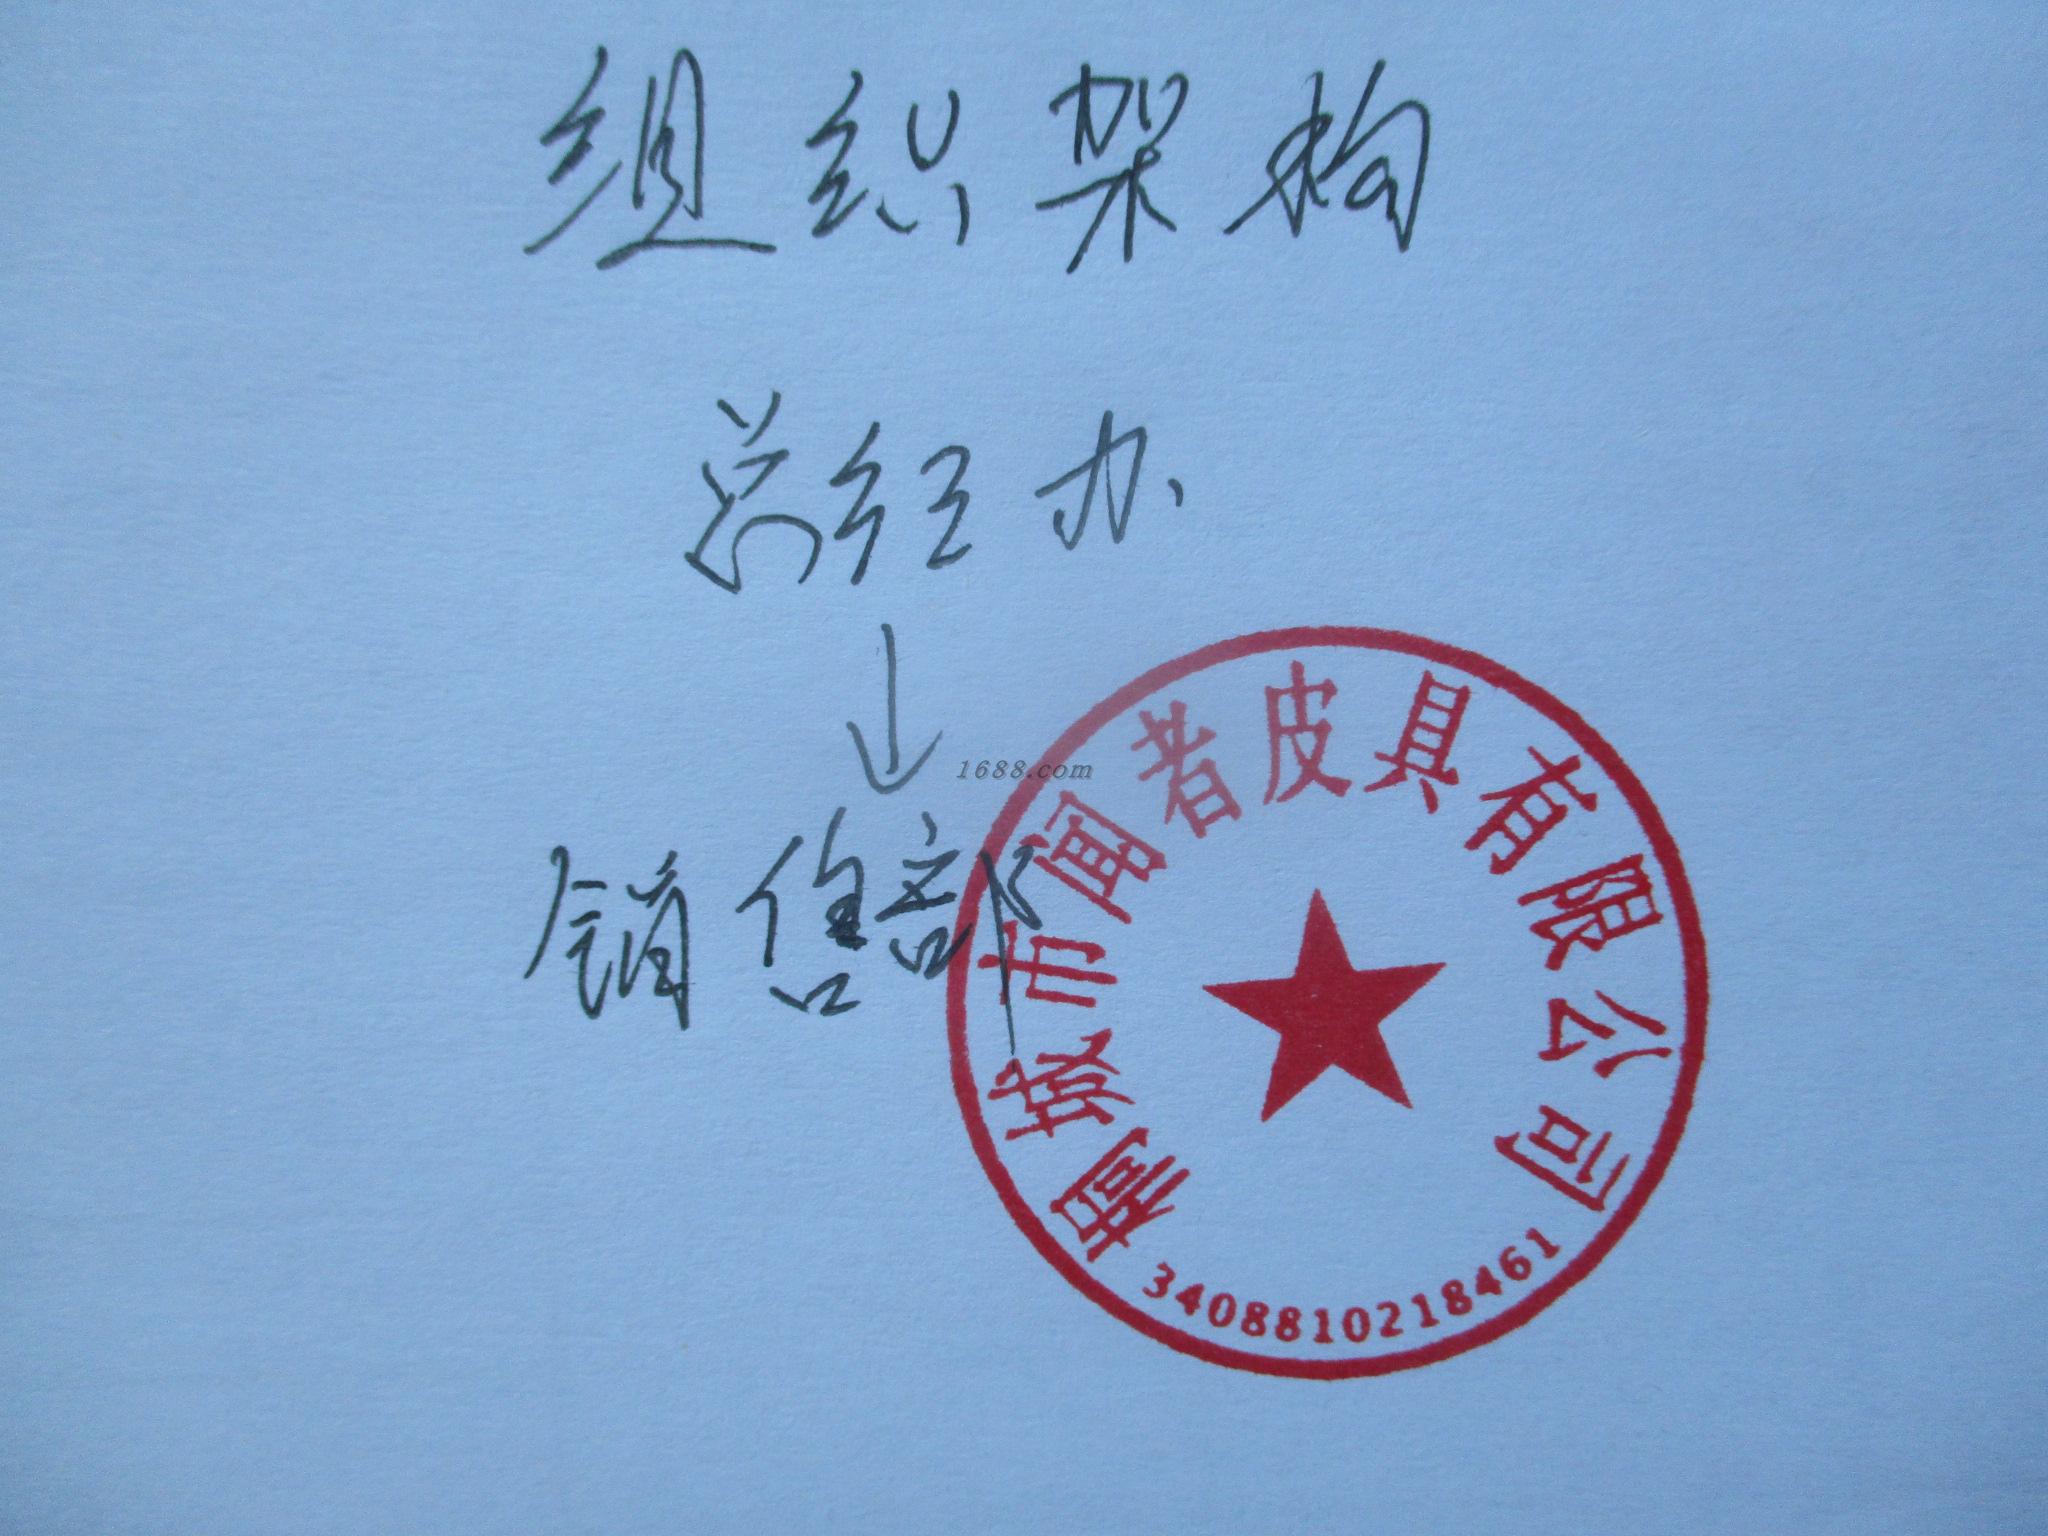 组织架构
总经办
↓
1688.com
销售部
桐城市闻者皮具有限公司
3408810218461